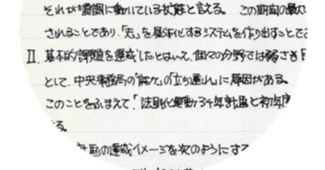 それが順調に動いている状態と言える。 この期間の最大
されることであり、「天」を基準化するシステムを作り出すことで
Ⅱ. 基本的課題を達成したとはいえ、個々の分野では弱さも
として、中央事務局の"能力"の立ち遅れに原因がある。
このことをふまえて「法則化運動3ヶ年計画と初年度
る。
計画の達成イメージを次のようにする